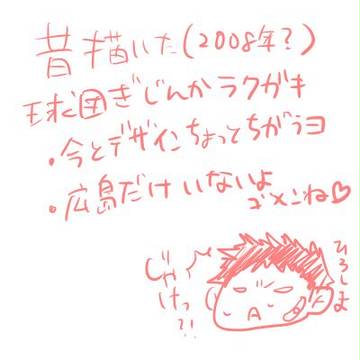 昔描いた(2008年?)
球団ぎじんかラクガキ
・今とデザインちょっとちがうヨ
・広島だけいないよ
ゴメンね♡
ひろしま
じゃけっ?!